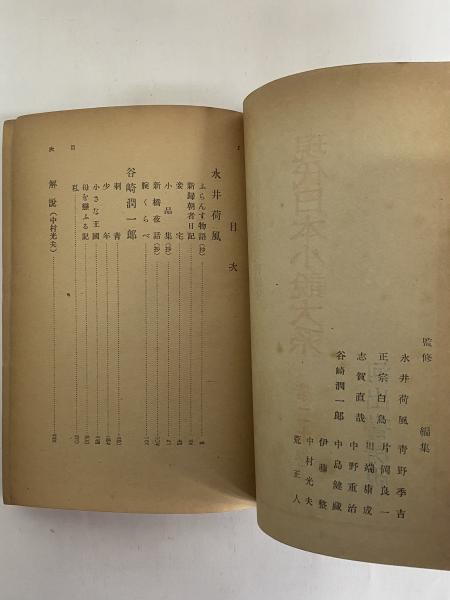 監修　編集
永井荷風　青野季吉
正宗白鳥　片岡良一
志賀直哉　川端康成
谷崎潤一郎　中野重治
中島健蔵
伊藤整
中村光夫
荒正人
目次
永井荷風
ふらんす物語（抄）
新歸朝者日記
妾宅
小品集（抄）
新橋夜話（抄）
腕くらべ
谷崎潤一郎
刺青
少年
小さな王國
母を戀ふる記
私
解說（中村光夫）
目次